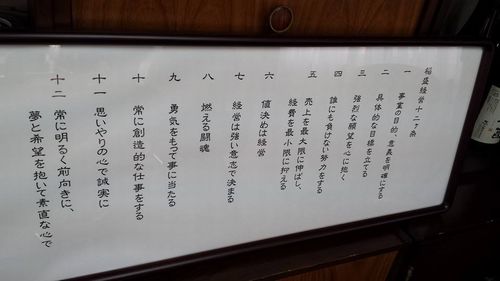 稲盛経営十二ヶ条
一 事業の目的、意義を明確にする
二 具体的な目標を立てる
三 強烈な願望を心に抱く
四 誰にも負けない努力をする
五 売上を最大限に伸ばし、
経費を最小限に抑える
六 値決めは経営
七 経営は強い意志で決まる
八 燃える闘魂
九 勇気をもって事に当たる
十 常に創造的な仕事をする
十一 思いやりの心で誠実に
十二 常に明るく前向きに、
夢と希望を抱いて素直な心で